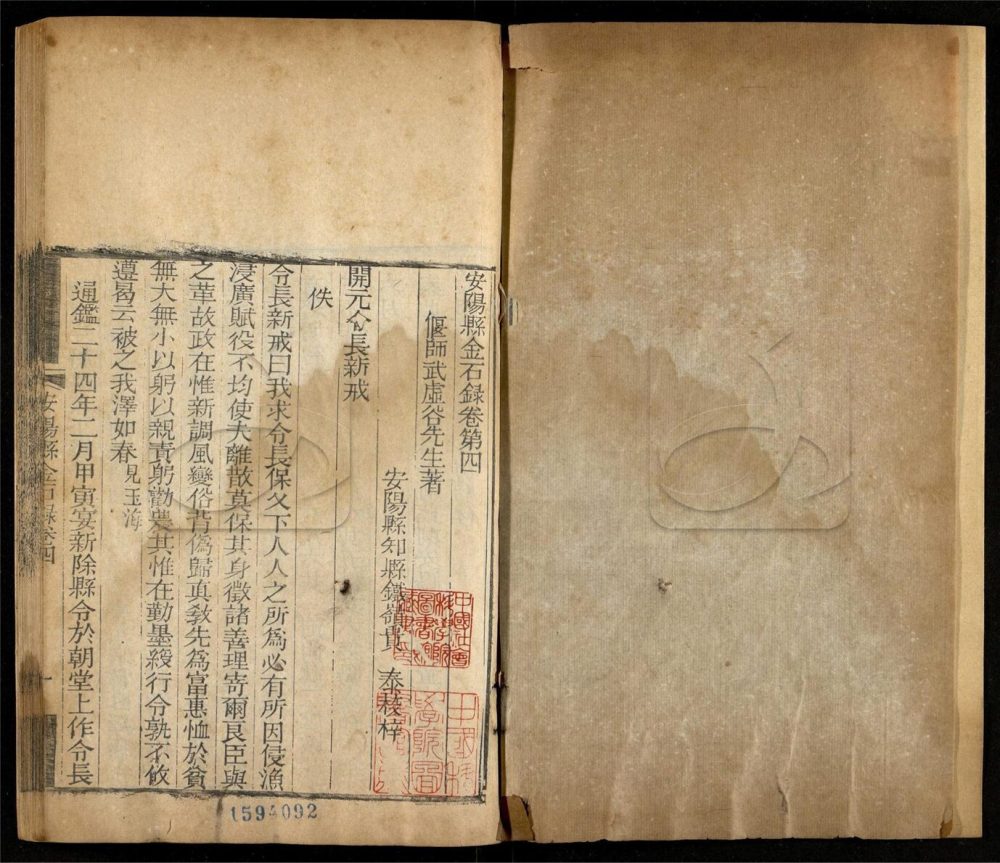 安陽縣金石録卷第四
偃師武虛谷先生著
安陽縣知縣鐵嶺貴 泰菝梓
開元令長新戒
佚
令長新戒曰我求令長保乂下人人之所爲必有所因侵漁
浸廣賦役不均使夫離散莫保其身徵諸善理寄爾良臣與
之革故政在惟新調風變俗背僞歸真敎先爲富惠恤於貧
無大無小以躬以親責躬勸農其惟在勤墨綬行令孰不攸
遵曷云被之我澤如春見玉海
通鑑二十四年二月甲寅宴新除縣令於朝堂上作令長
安陽縣金石錄卷四
一
中國社會科學院圖書館
1594092